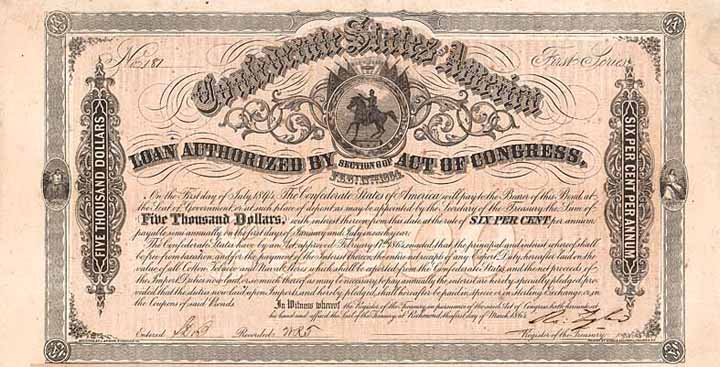 No. 181 First Series
Confederate States America
LOAN AUTHORIZED BY SECTION 6 OF ACT OF CONGRESS,
FEB. 17TH 1864.
FIVE THOUSAND DOLLARS
SIX PER CENT PER ANNUM
On the First day of July 1894, The Confederate States of America will pay to the Bearer of this Bond, at
the Seat of Government, or at such place of deposit as may be appointed by the Secretary of the Treasury, the Sum of
Five Thousand Dollars, with interest thereon from this date, at the rate of SIX PER CENT, per annum,
payable semi annually on the first days of January and July in each year.
The Confederate States have by an Act approved February 17th 1864, enacted that the principal and interest whereof shall
be free from taxation, and for the payment of the Interest thereon, the entire net receipts of any Export Duty, hereafter laid on the
value of all Cotton, Tobacco and Naval Stores, which shall be exported from the Confederate States, and the net proceeds of
the Import Duties now laid, or so much thereof as may be necessary to pay annually the interest are hereby specially pledged: provided
that the duties now laid upon Imports, and hereby pledged, shall hereafter be paid in Specie or in Sterling Exchange, or in
the Coupons of said Bonds.
In Witness whereof the Register of the Treasury in pursuance of the said Act of Congress hath hereunto set
his hand and affixed the Seal of the Treasury, at Richmond, this first day of March 1864.
Entered Recorded
Register of the Treasury